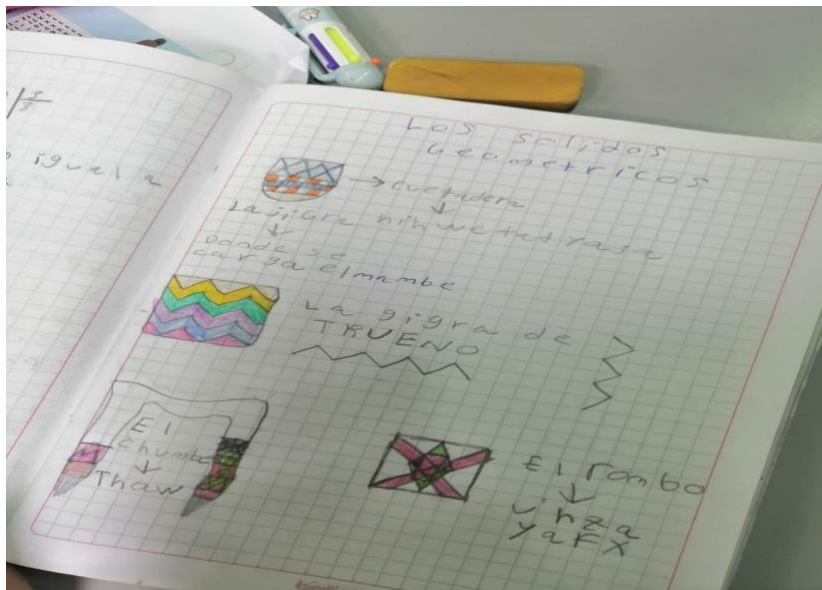 igual a
LOS solidos
Geometricos
cuetadera
La jigra
Donde se
carga el mambe
La gigra de
TRUENO
El
chumbe
Thaw
El rombo
yafx